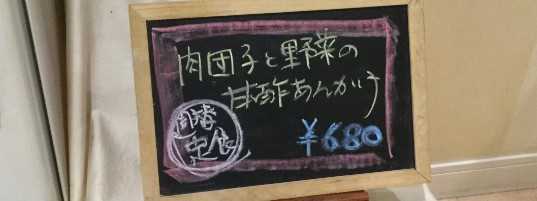 肉団子と野菜の
甘酢あんかけ
¥680
定食